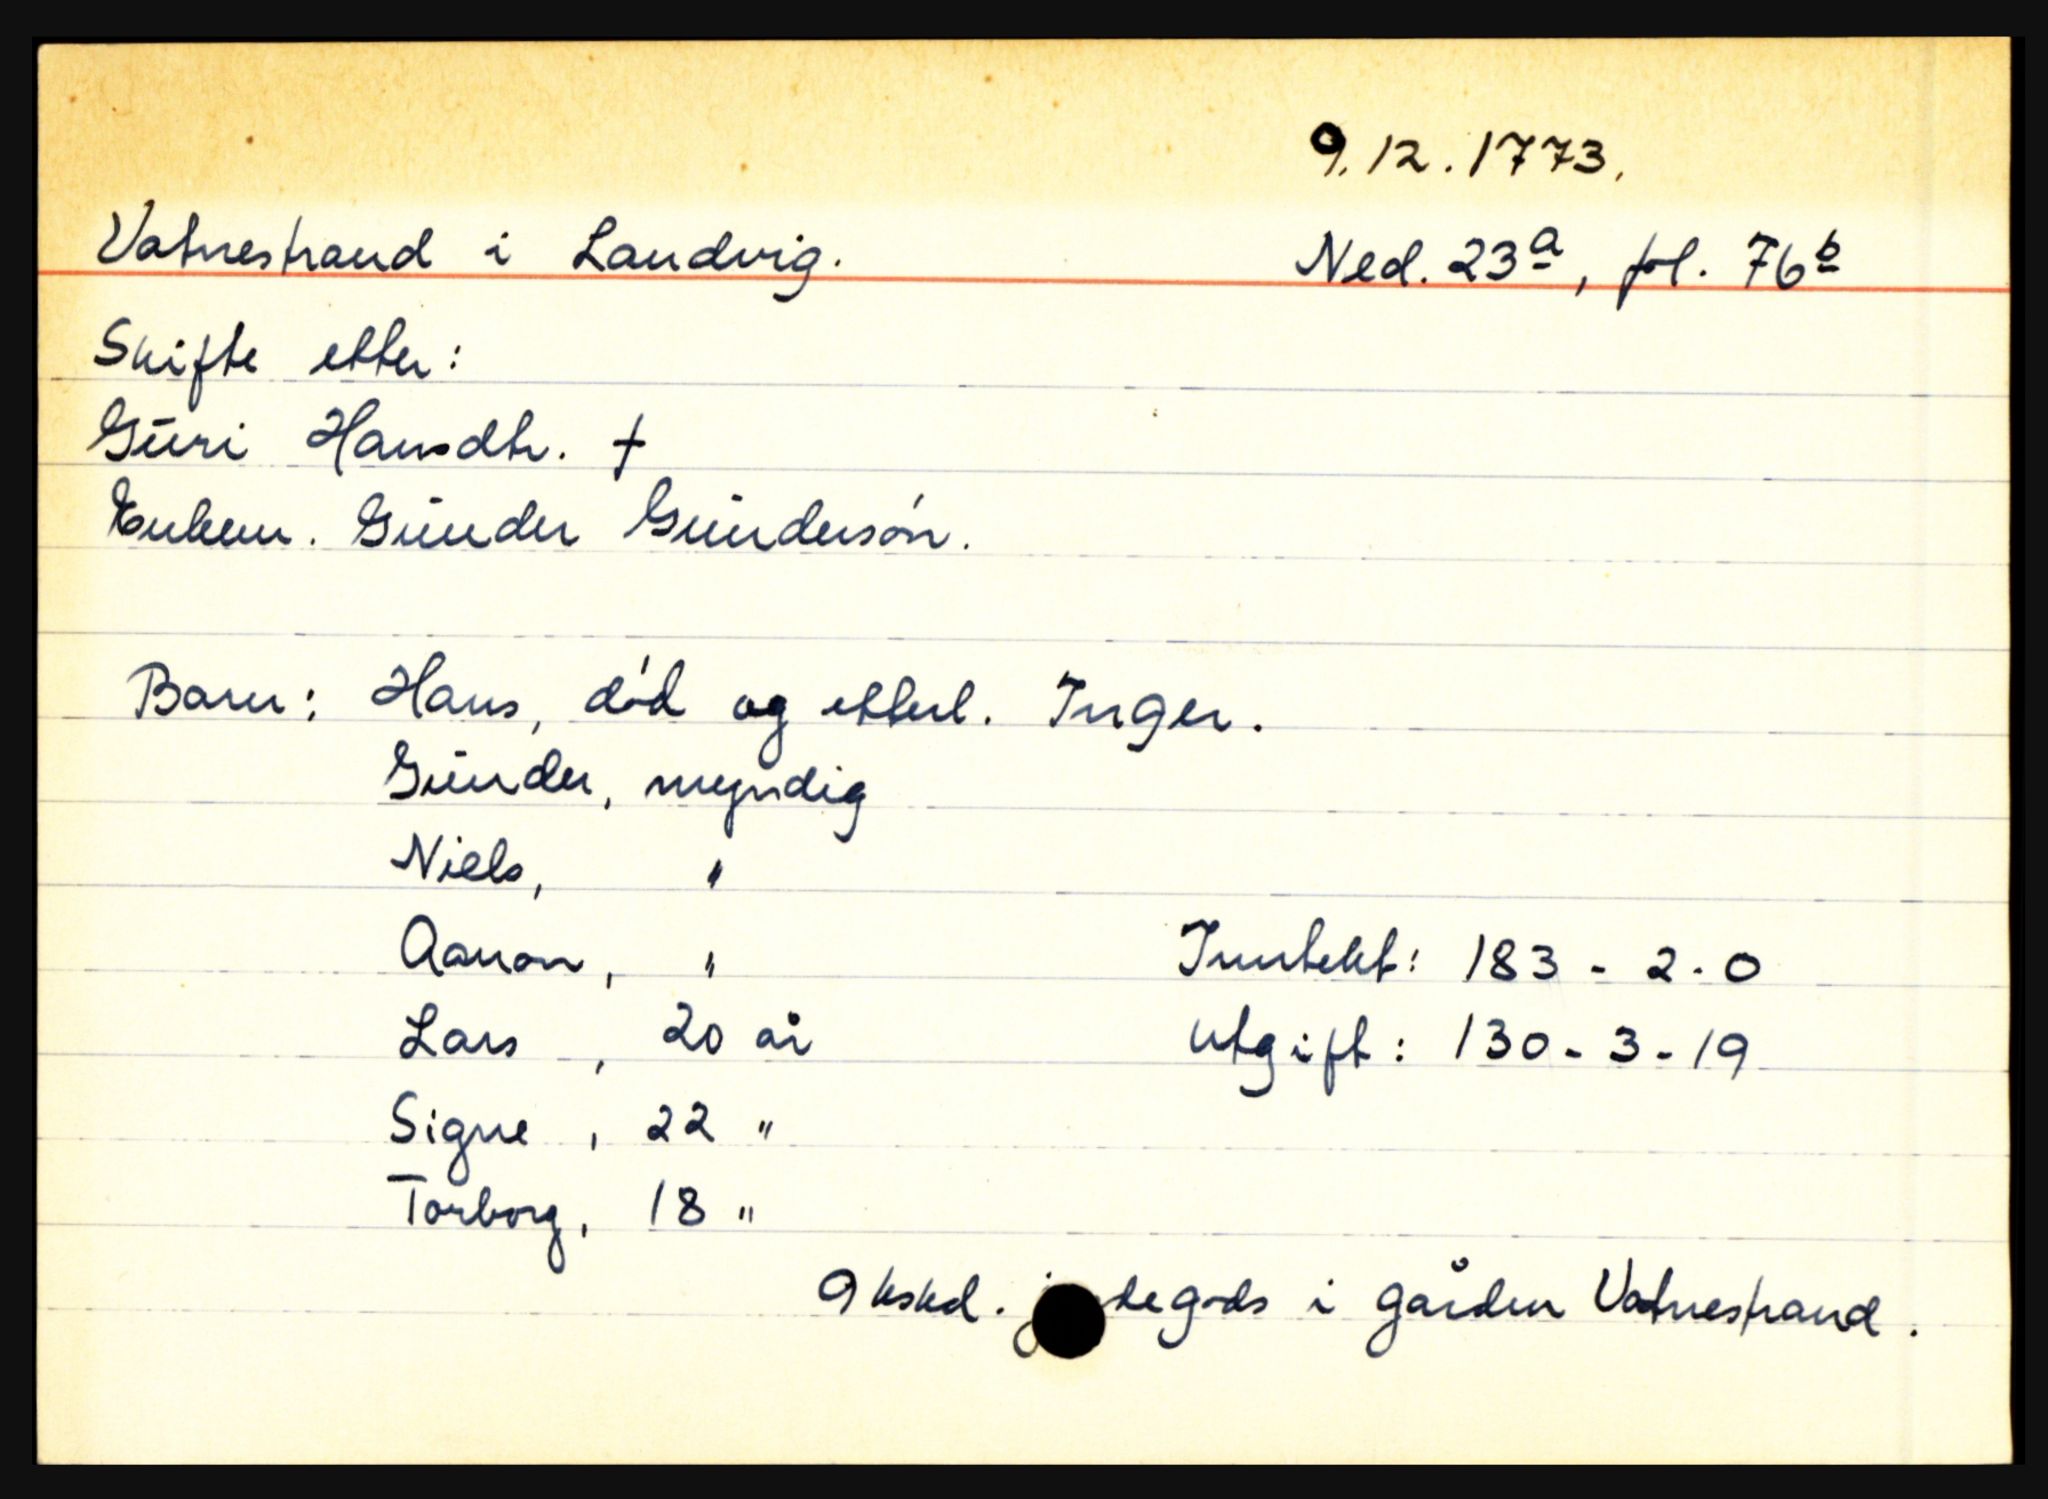 9.12.1773.
Vatnestrand i Landvig. Ned. 23a, fol. 76b
Skifte etter:
Guri Hansdtr. †
Enkem. Gunder Gundersøn.
Barn: Hans, død og etterl. Inger.
Gunder, myndig
Niels, "
Aanon, " Inntekt: 183 - 2 - 0
Lars, 20 år Utgift: 130 - 3 - 19
Signe, 22 "
Torborg, 18 "
9 kskd. j tegods i gården Vatnestrand.